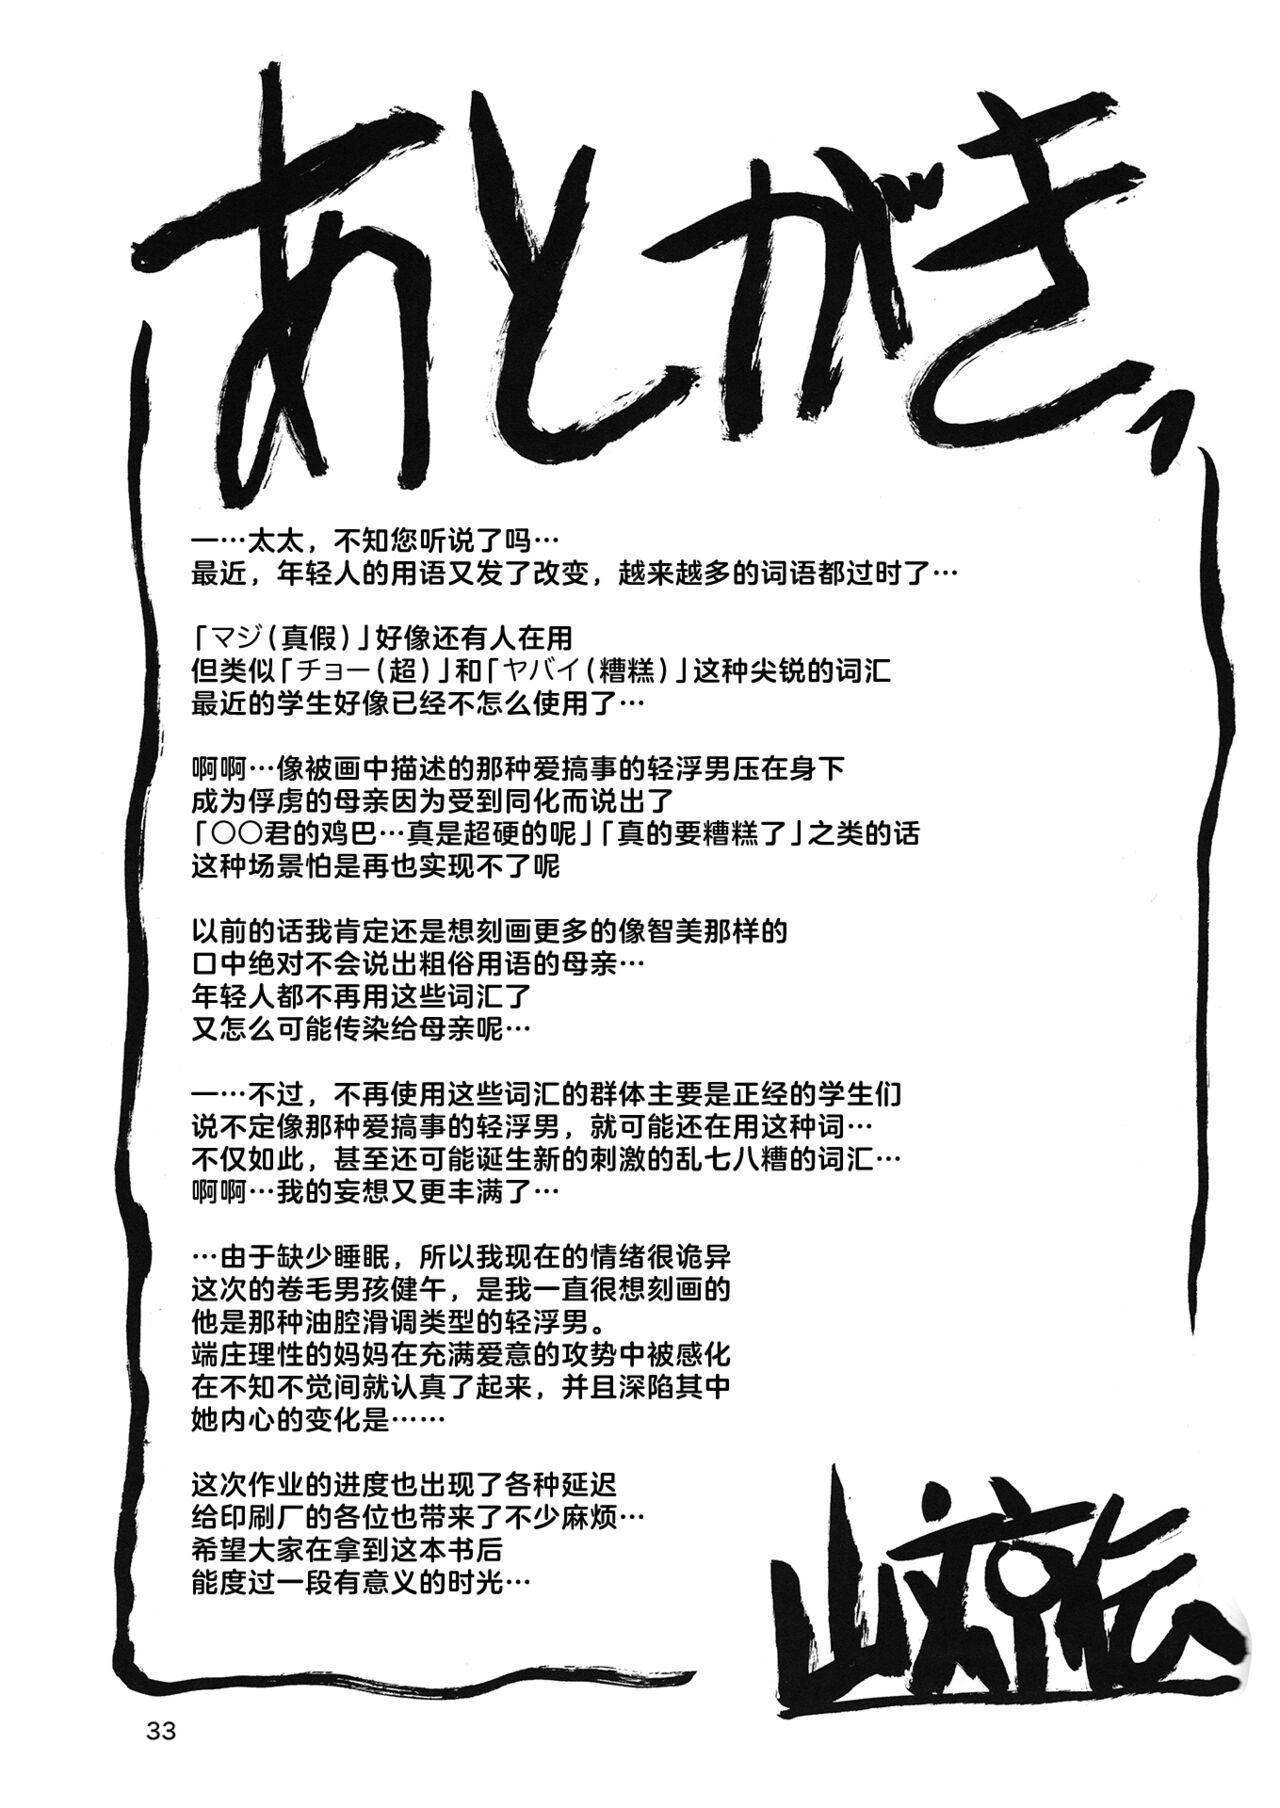 あとがき
一…太太，不知您听说了吗…
最近，年轻人的用语又发了改变，越来越多的词语都过时了…
「マジ（真假）」好像还有人在用
但类似「チョー（超）」和「ヤバイ（糟糕）」这种尖锐的词汇
最近的学生好像已经不怎么使用了…
啊啊…像被画中描述的那种爱搞事的轻浮男压在身下
成为俘虏的母亲因为受到同化而说出了
「〇〇君的鸡巴…真是超硬的呢」「真的要糟糕了」之类的话
这种场景怕是再也实现不了呢
以前的话我肯定还是想刻画更多的像智美那样的
口中绝对不会说出粗俗用语的母亲…
年轻人都不再用这些词汇了
又怎么可能传染给母亲呢…
一…不过，不再使用这些词汇的群体主要是正经的学生们
说不定像那种爱搞事的轻浮男，就可能还在用这种词…
不仅如此，甚至还可能诞生新的刺激的乱七八糟的词汇…
啊啊…我的妄想又更丰满了…
…由于缺少睡眠，所以我现在的情绪很诡异
这次的卷毛男孩健午，是我一直很想刻画的
他是那种油腔滑调类型的轻浮男。
端庄理性的妈妈在充满爱意的攻势中被感化
在不知不觉间就认真了起来，并且深陷其中
她内心的变化是……
这次作业的进度也出现了各种延迟
给印刷厂的各位也带来了不少麻烦…
希望大家在拿到这本书后
能度过一段有意义的时光…
山文京伝
33